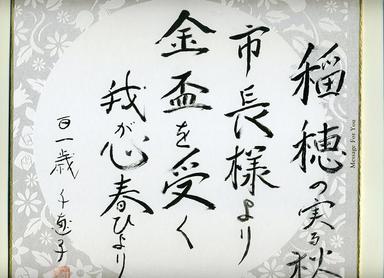 稲穂の実る秋
市長様より
金盃を受く
我が心春ひより
百一歳 千恵子
Message For You